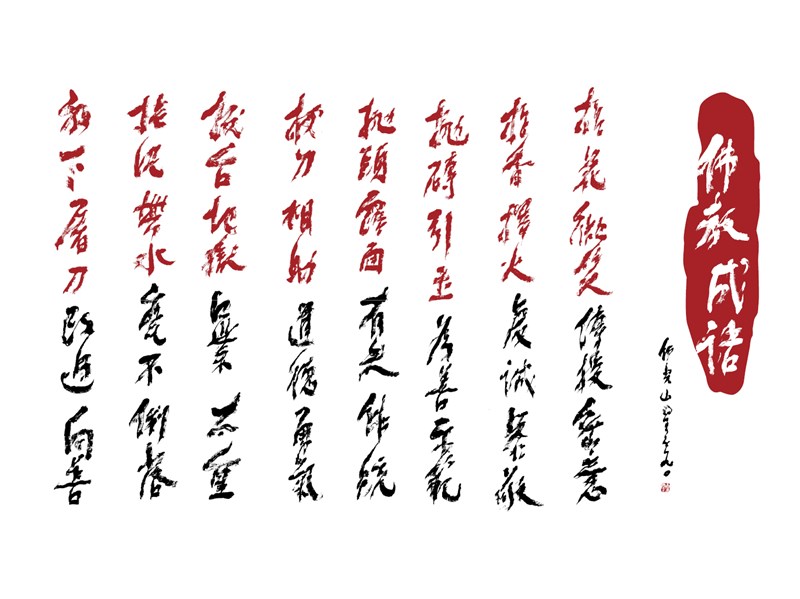 佛教成語
佛光山 星雲
拈花微笑 傳授意
拈香火 虔誠恭敬
拋磚引玉 善示範
拋頭露面 有失體統
拔刀相助 道德勇氣
拔舌地獄 業重
拖泥帶水 不俐落
放下屠刀 改過向善